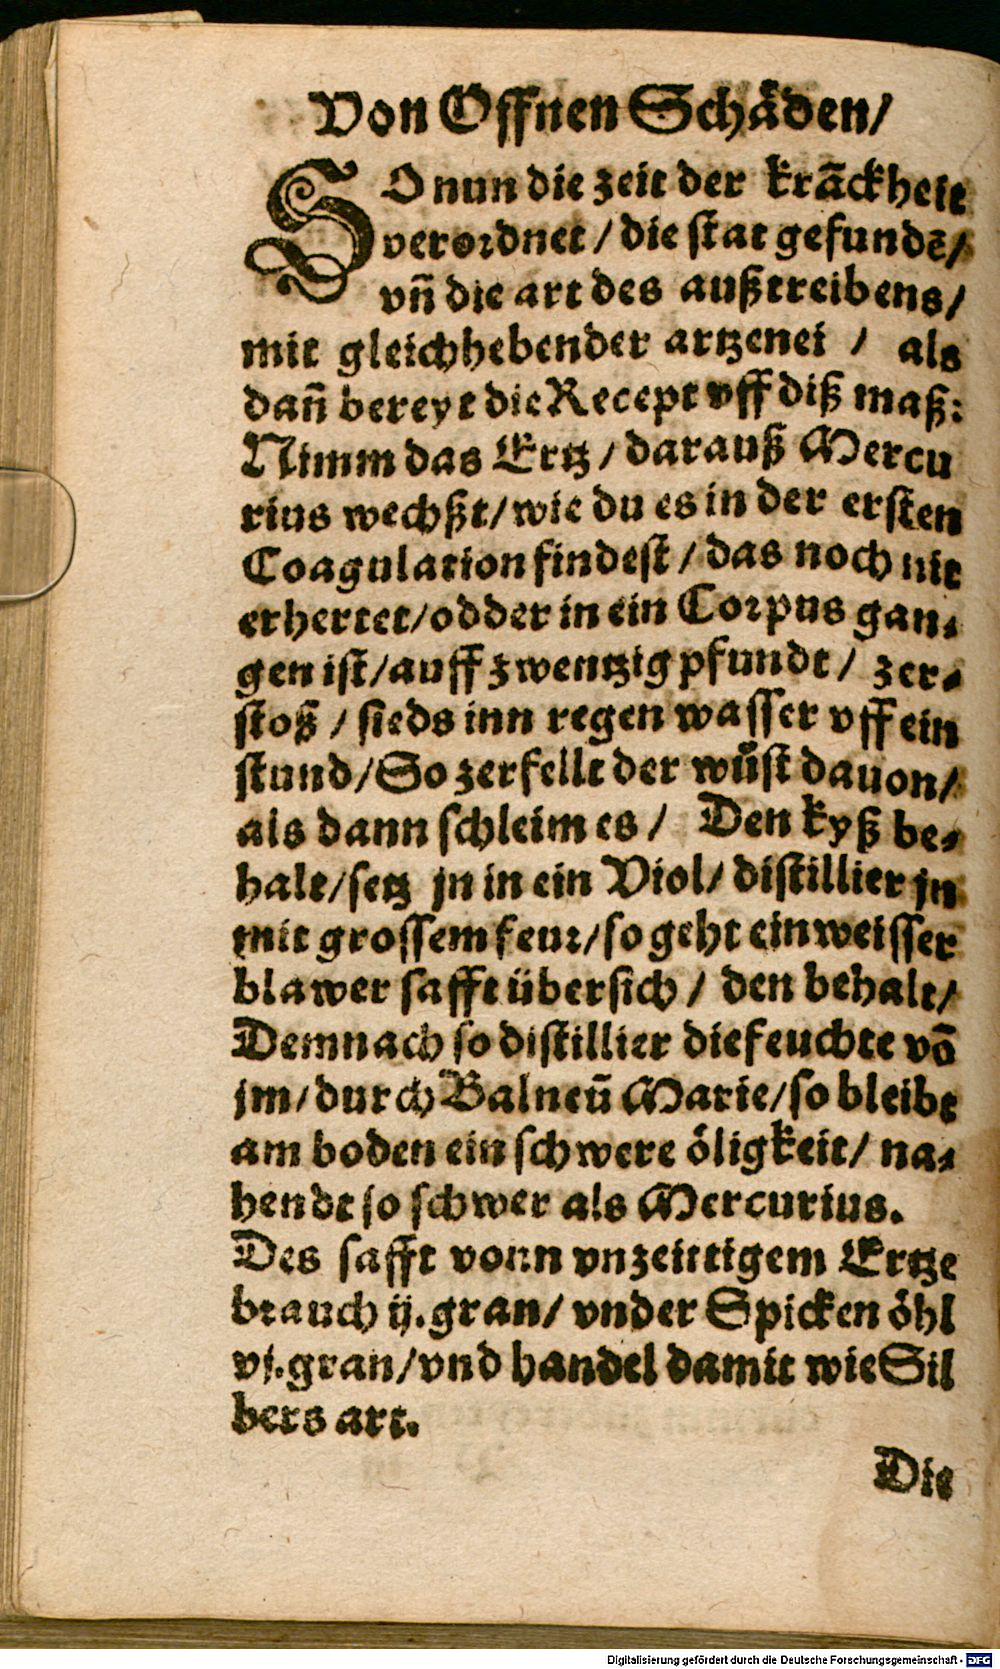 Von Offnen Schäden/
SO nun die zeit der krãckheit
verordnet / die stat gefundẽ/
vñ die art des außtreibens/
mit gleichhebender artzenei / als
dañ bereyt die Recept vff diß maß:
Nimm das Ertz / darauß Mercu
rius wechßt / wie du es in der ersten
Coagulation findest / das noch nit
erhertet / odder in ein Corpus gan-
gen ist / auff zwentzig pfundt / zer-
stoß / sieds inn regen wasser vff ein
stund / So zerfellt der wůst dauon/
als dann schleim es / Den kyß be-
halt / setz jn in ein Viol / distillier jn
mit grossem feur / so geht ein weisser
blawer safft übersich / den behalt/
Demnach so distillier die feuchte võ
jm / durch Balneũ Marie / so bleibt
am boden ein schwere öligkeit / na-
hendt so schwer als Mercurius.
Des safft vonn vnzeittigem Ertze
brauch ij. gran / vnder Spicken öhl
vj. gran / vnd handel damit wie Sil
bers art.
Die
Digitalisierung gefördert durch die Deutsche Forschungsgemeinschaft - DFG